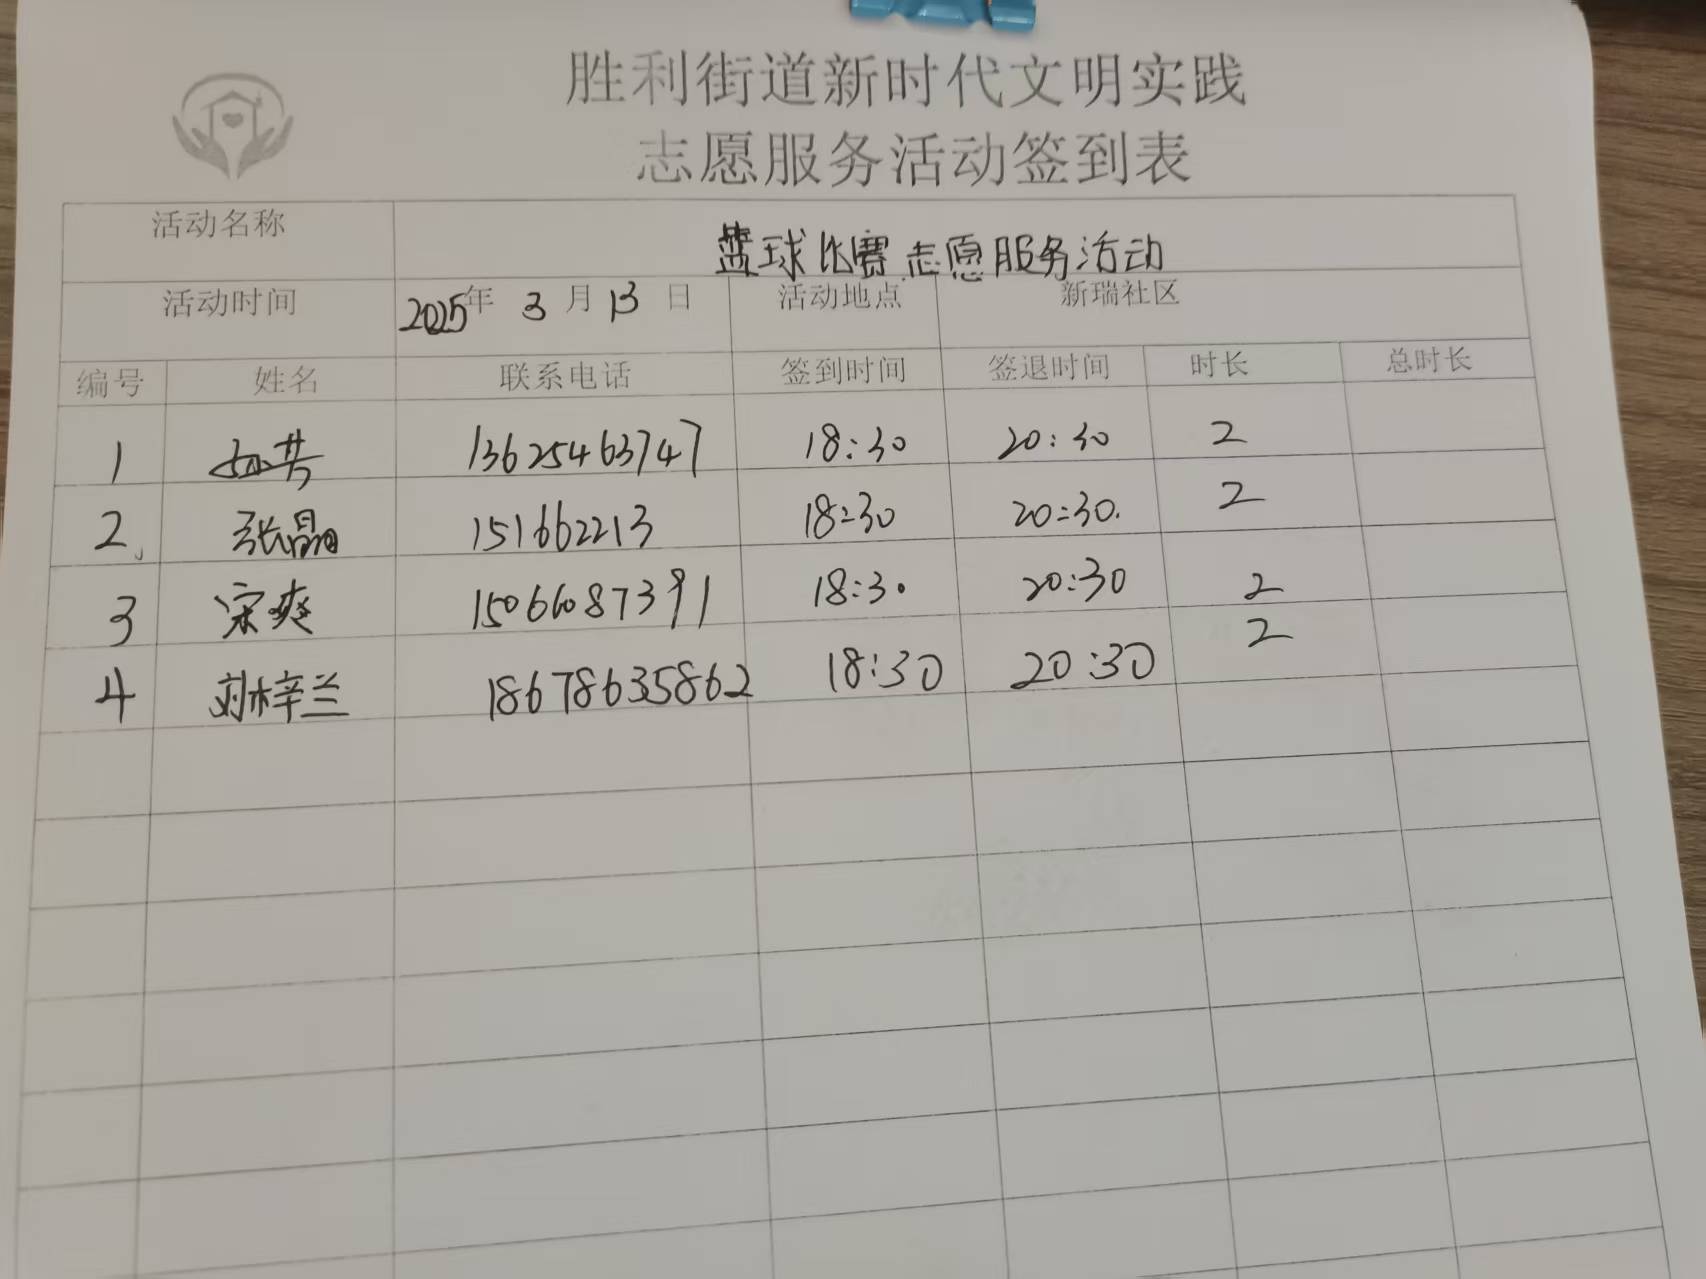 胜利街道新时代文明实践
志愿服务活动签到表
活动名称 篮球比赛志愿服务活动
活动时间 2025年 3 月 13 日 活动地点 新瑞社区
编号 姓名 联系电话 签到时间 签退时间 时长 总时长
1 13625463747 18:30 20:30 2
2 张晶 151662213 18:30 20:30. 2
3 宋爽 15066087391 18:30 20:30 2
4 刘梓兰 18678635862 18:30 20:30 2